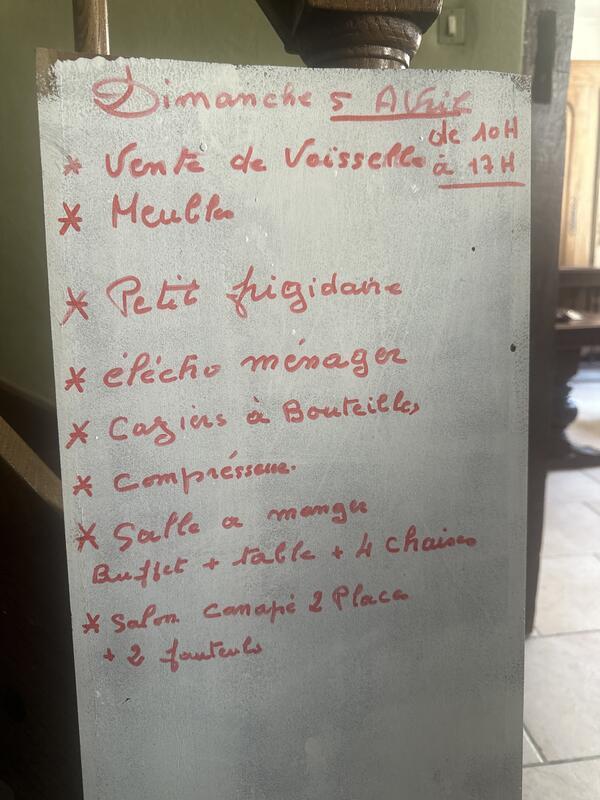 Dimanche 5 Avril
de 10H
à 17H
* Vente de Voisselle
* Meubles
* Petit frigidaire
* électro ménager
* Casiers à Bouteilles
* Comprésseur.
* Salle a manger
Buffet + table + 4 chaises
* Salon canapé 2 Places
+ 2 fauteuils